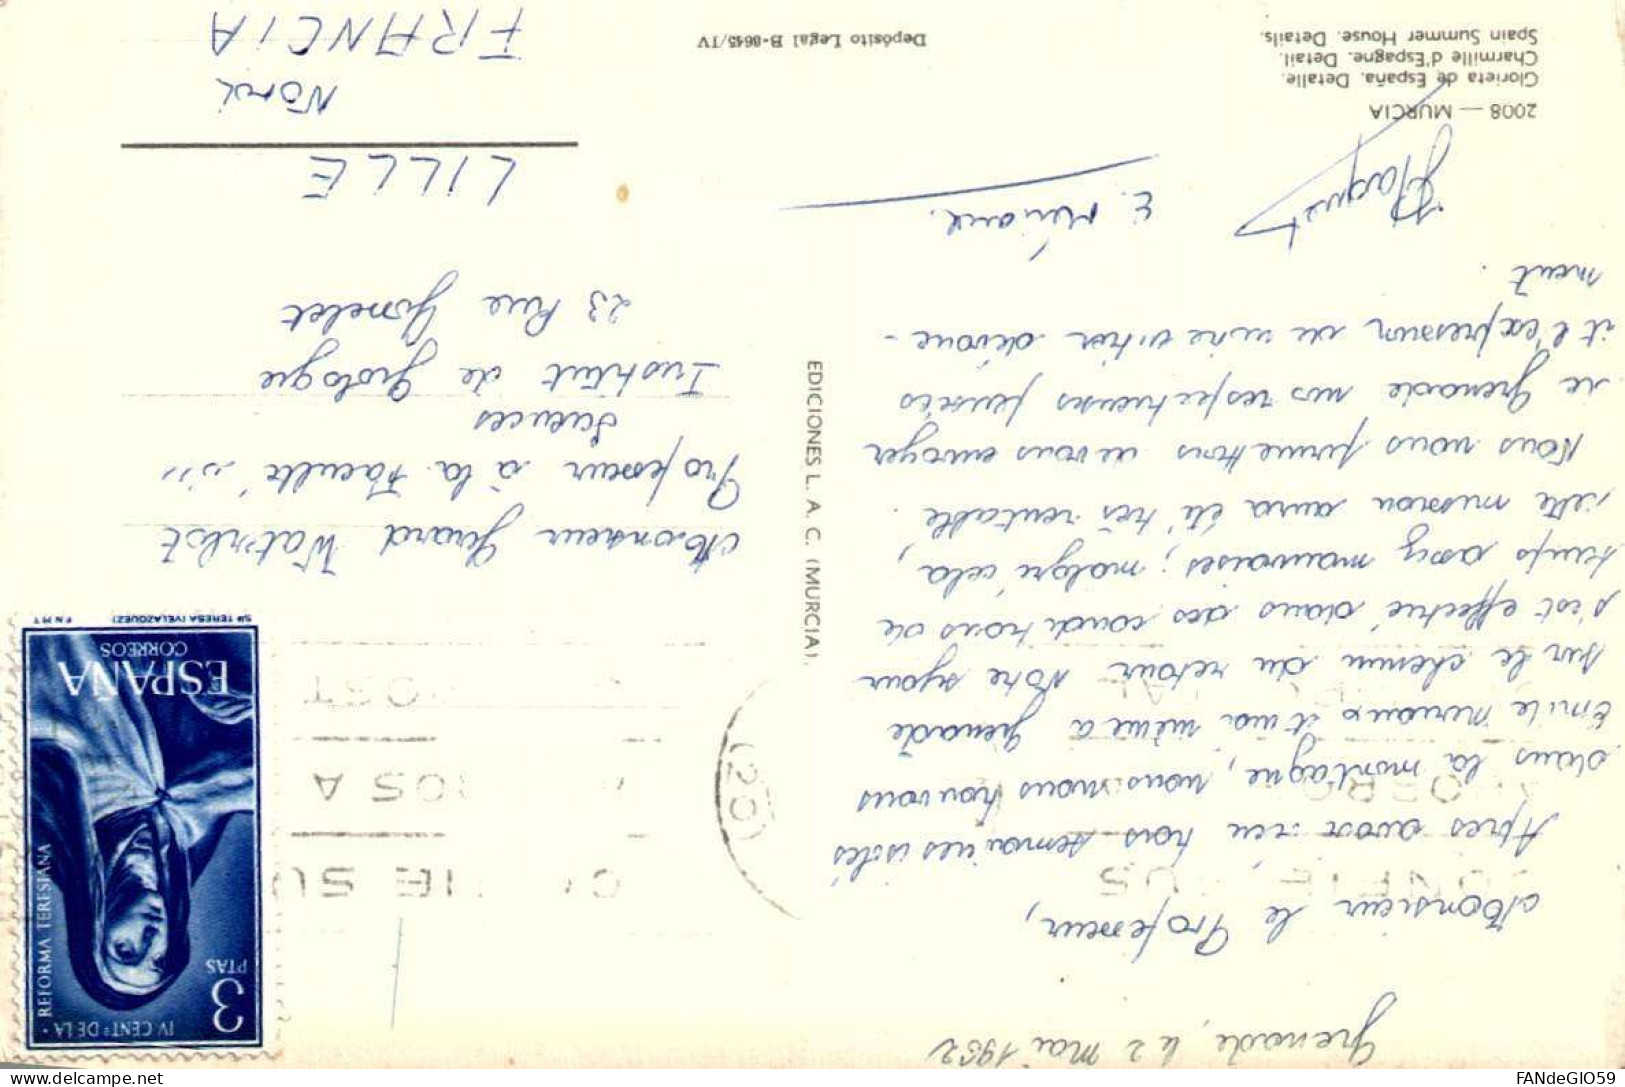 Grenade, le 2 Mai 1952
Monsieur le Professeur,
Après avoir vécu trois semaines isolés
dans la montagne, nous nous trouvons
Emile Mériaux et moi même à Grenade
sur le chemin du retour. Notre séjour
s'est effectué dans des conditions de
temps assez mauvaises ; malgré cela,
cette mission aura été très rentable.
Nous nous permettons de vous envoyer
de Grenade nos respectueuses pensées
et l'expression de notre entier dévoue-
ment.
E. Mériaux.
2008 — MURCIA
Glorieta de España. Detalle.
Charmille d'Espagne. Detail.
Spain Summer House. Details.
Depósito Legal B-8645/IV
EDICIONES L. A. C. (MURCIA).
IV CENTº DE LA
REFORMA TERESIANA
3
PTAS
ESPAÑA
CORREOS
Sta TERESA (VELAZQUEZ)
F.N.M.T
Monsieur Gérard Waterlot
Professeur à la Faculté des
Sciences
Institut de Géologie
23 Rue Gosselet
LILLE
Nord
FRANCIA
FANdeGIO59